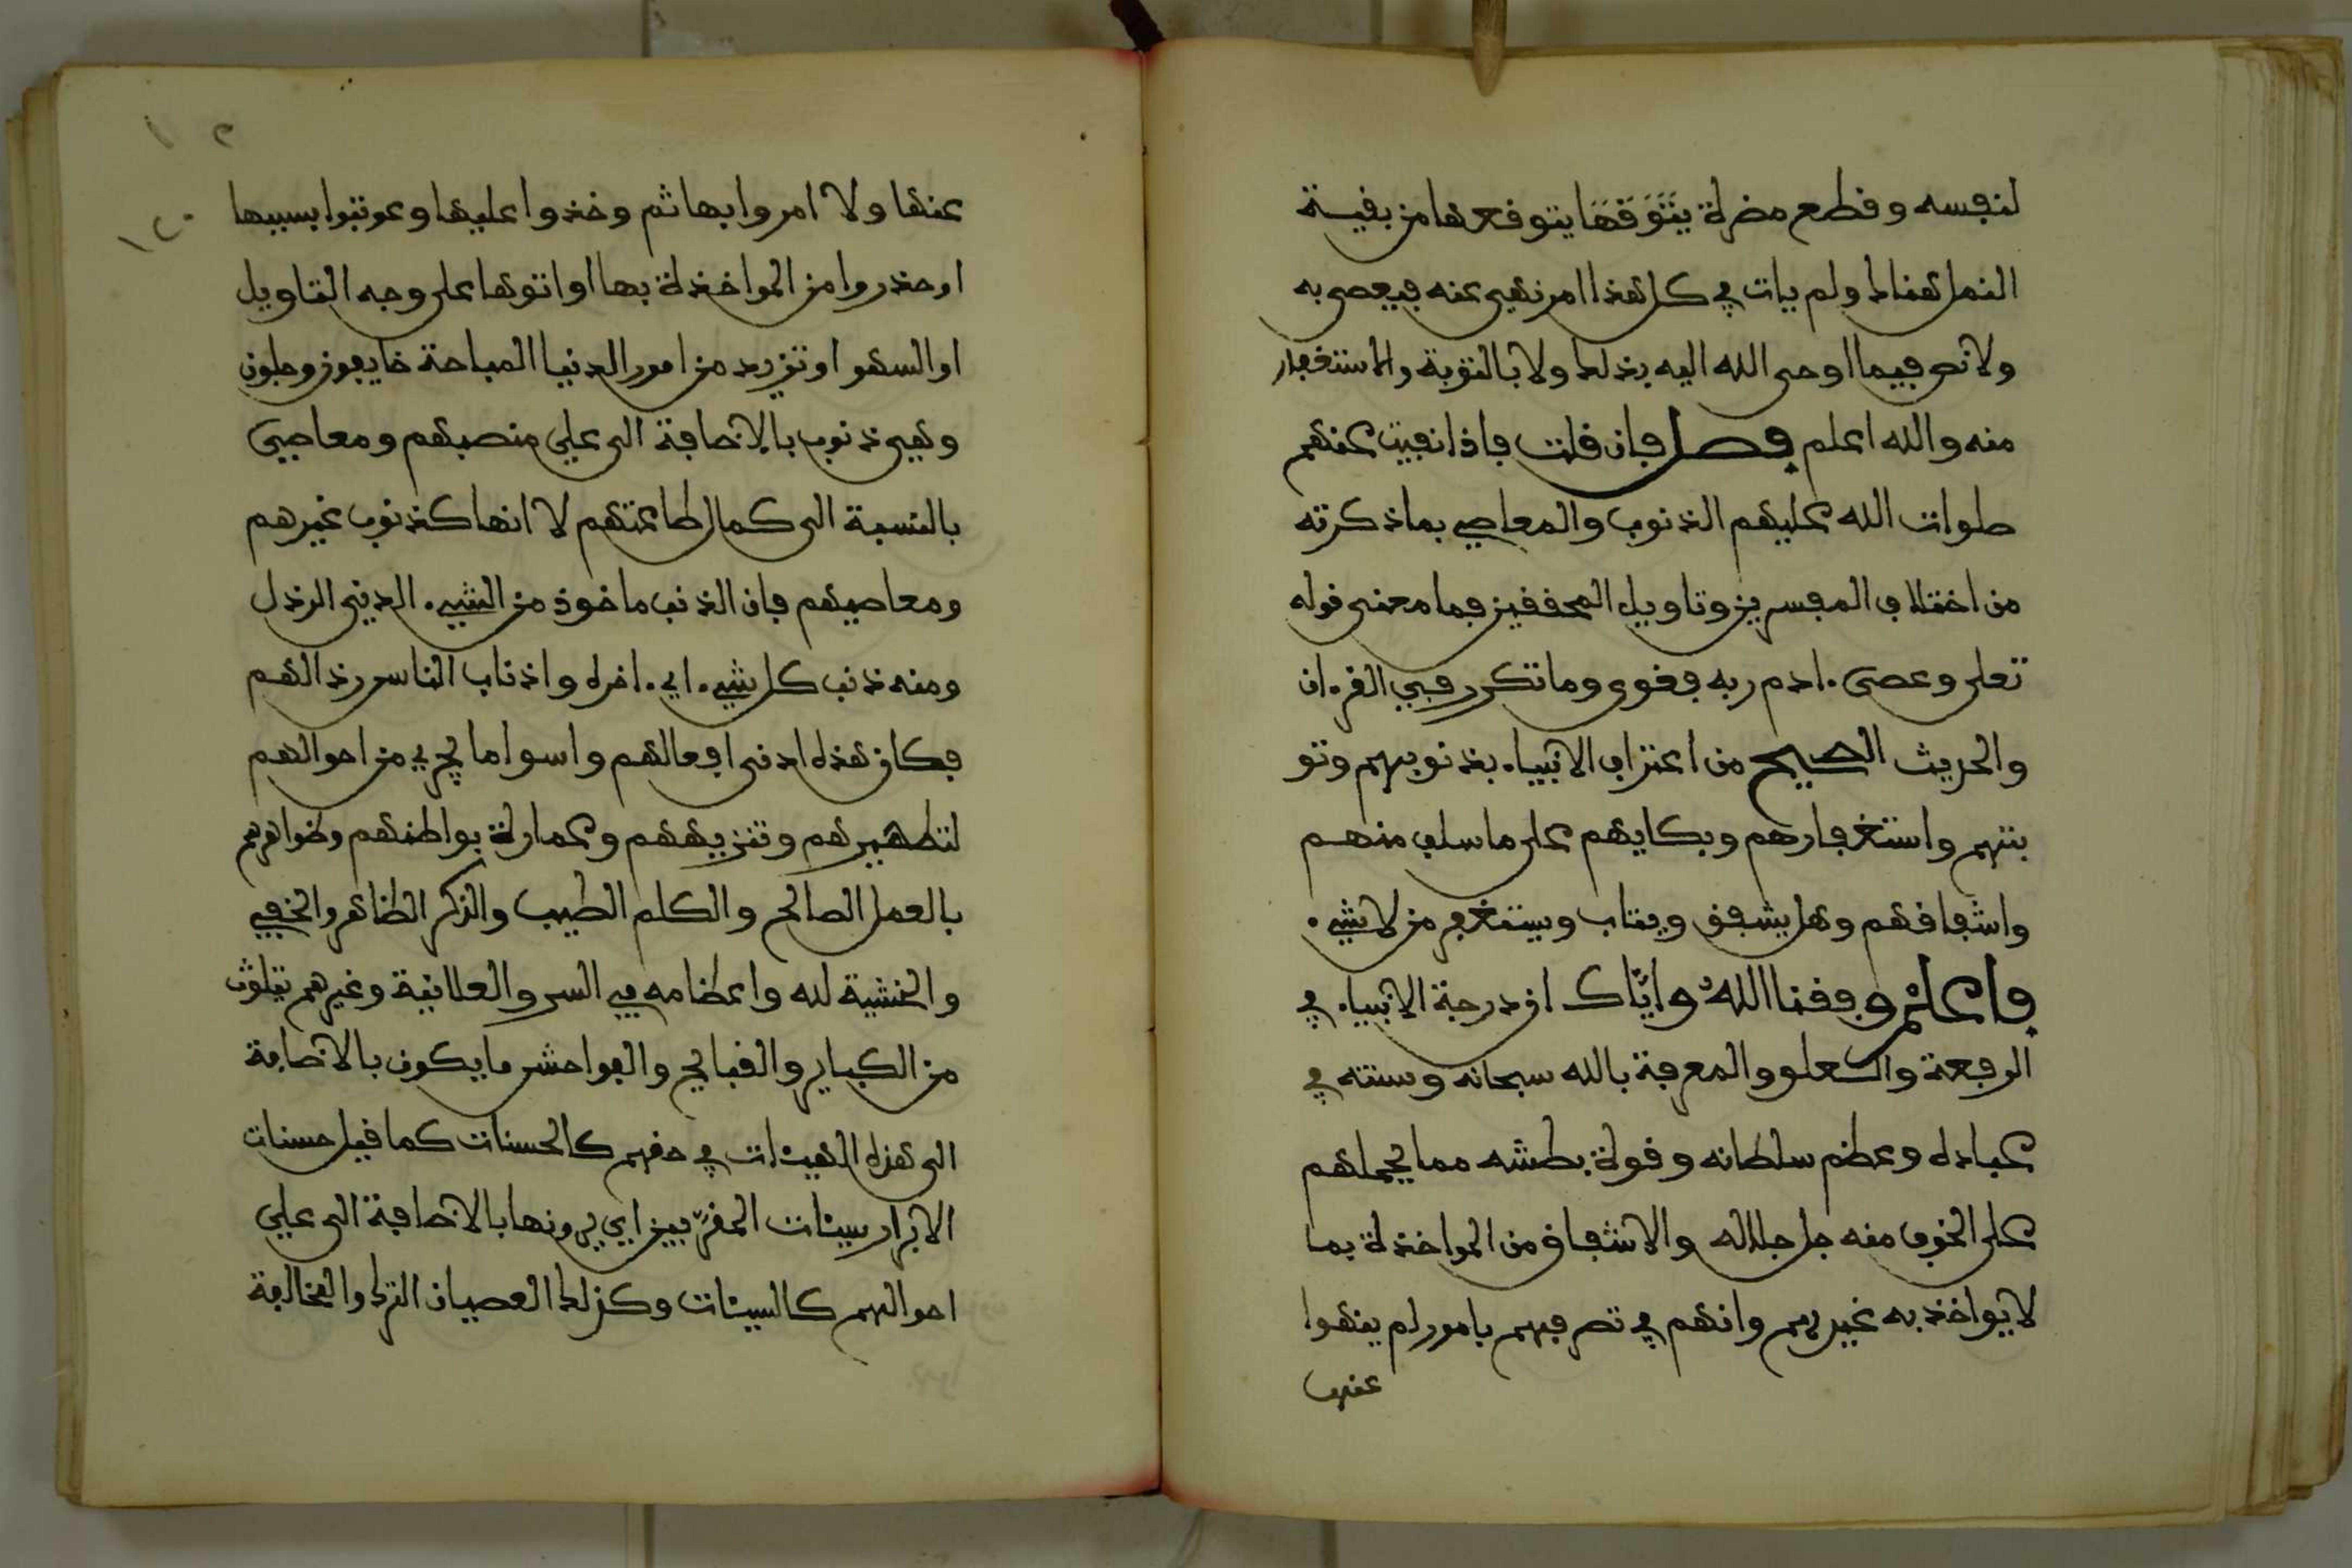 لنفسه وقطع مضرة يَتَوَقَّهَا يتوقعها من بقية
النمل هناك ولم يات في كل هذا امر نهي عنه فيعصى به
ولا نص فيما اوحى الله اليه بذلك ولا بالتوبة والاستغفار
منه والله اعلم فصل فان قلت فاذا نفيت عنهم
صلوات الله عليهم الذنوب والمعاصي بما ذكرته
من اختلاف المفسرين وتاويل المحققين فما معنى قوله
تعلى وعصى ءادم ربه فغوى وما تكرر في القرءان
والحديث الصحيح من اعتراف الانبياء بذنوبهم وتو
بتهم واستغفارهم وبكايهم على ما سلف منهم
واشفاقهم وهل يشفق ويتاب ويستغفر من لا شيء
فاعلم وفقنا الله واياك ان درجة الانبياء في
الرفعة والعلو والمعرفة بالله سبحانه وسنته في
عباده وعظم سلطانه وقوة بطشه مما يحملهم
على الخوف منه جل جلاله والاشفاق من المواخذة بما
لا يواخذ به غيرهم وانهم في تصرفهم بامور لم ينهوا
عنها
عنها ولا امروا بها ثم وخذوا عليها وعوتبوا بسببها
او حذروا من المواخذة بها او اتوها على وجه التاويل
او السهو او تزيد من امور الدنيا المباحة خايفون وجلون
وهي ذنوب بالاضافة الى علي منصبهم ومعاصي
بالنسبة الى كمال طاعتهم لا انها كذنوب غيرهم
ومعاصيهم فان الذنب ماخوذ من الشيء الدني الرذل
ومنه ذنب كل شيء اي اخره واذناب الناس رذالهم
فكان هذه ادنى افعالهم واسوا ما يجري من احوالهم
لتطهيرهم وتنزيههم وعمارة بواطنهم وظواهرهم
بالعمل الصالح والكلم الطيب والذكر الظاهر والخفي
والخشية لله واعظامه في السر والعلانية وغيرهم يتلوث
من الكباير والقبايح والفواحش ما يكون بالاضافة
الى هذه الهيئات في حقهم كالحسنات كما قيل حسنات
الابرار سيئات المقربين اي يرونها بالاضافة الى علي
احوالهم كالسيئات وكذلك العصيان الترك والمخالفة
١٢٠